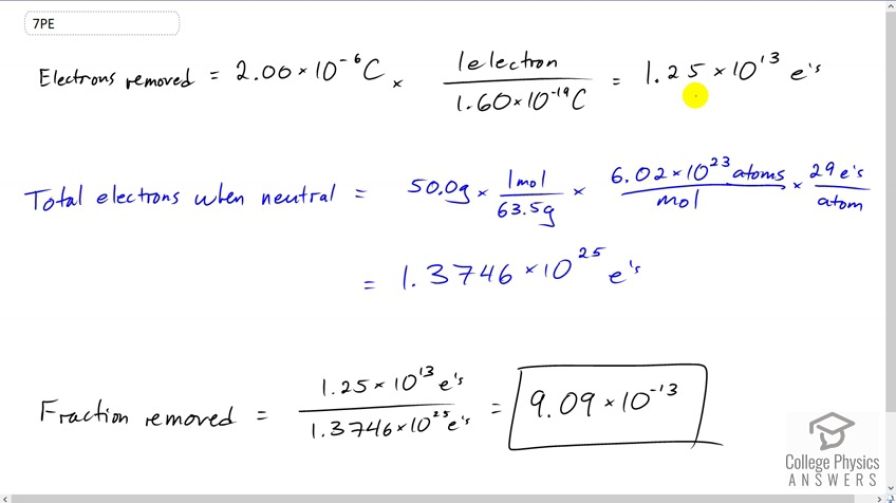 7PE
Electrons removed = 2.00 × 10⁻⁶ C × 1 electron / 1.60 × 10⁻¹⁹ C = 1.25 × 10¹³ e's
Total electrons when neutral = 50.0g × 1 mol / 63.5g × 6.02 × 10²³ atoms / mol × 29 e's / atom
= 1.3746 × 10²⁵ e's
Fraction removed = 1.25 × 10¹³ e's / 1.3746 × 10²⁵ e's = 9.09 × 10⁻¹³
College Physics
ANSWERS